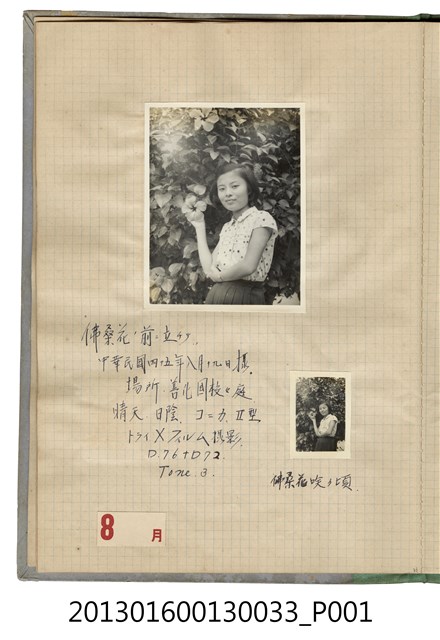 佛桑花ノ前ニ立チテ.
中華民國四十五年八月十九日 撮
場所 善化國校 庭
晴天 日陰 コニカ II型
トライXフィルム撮影.
D.76+D72.
Tone 3.
佛桑花咲ク頃.
8 月
201301600130033_P001